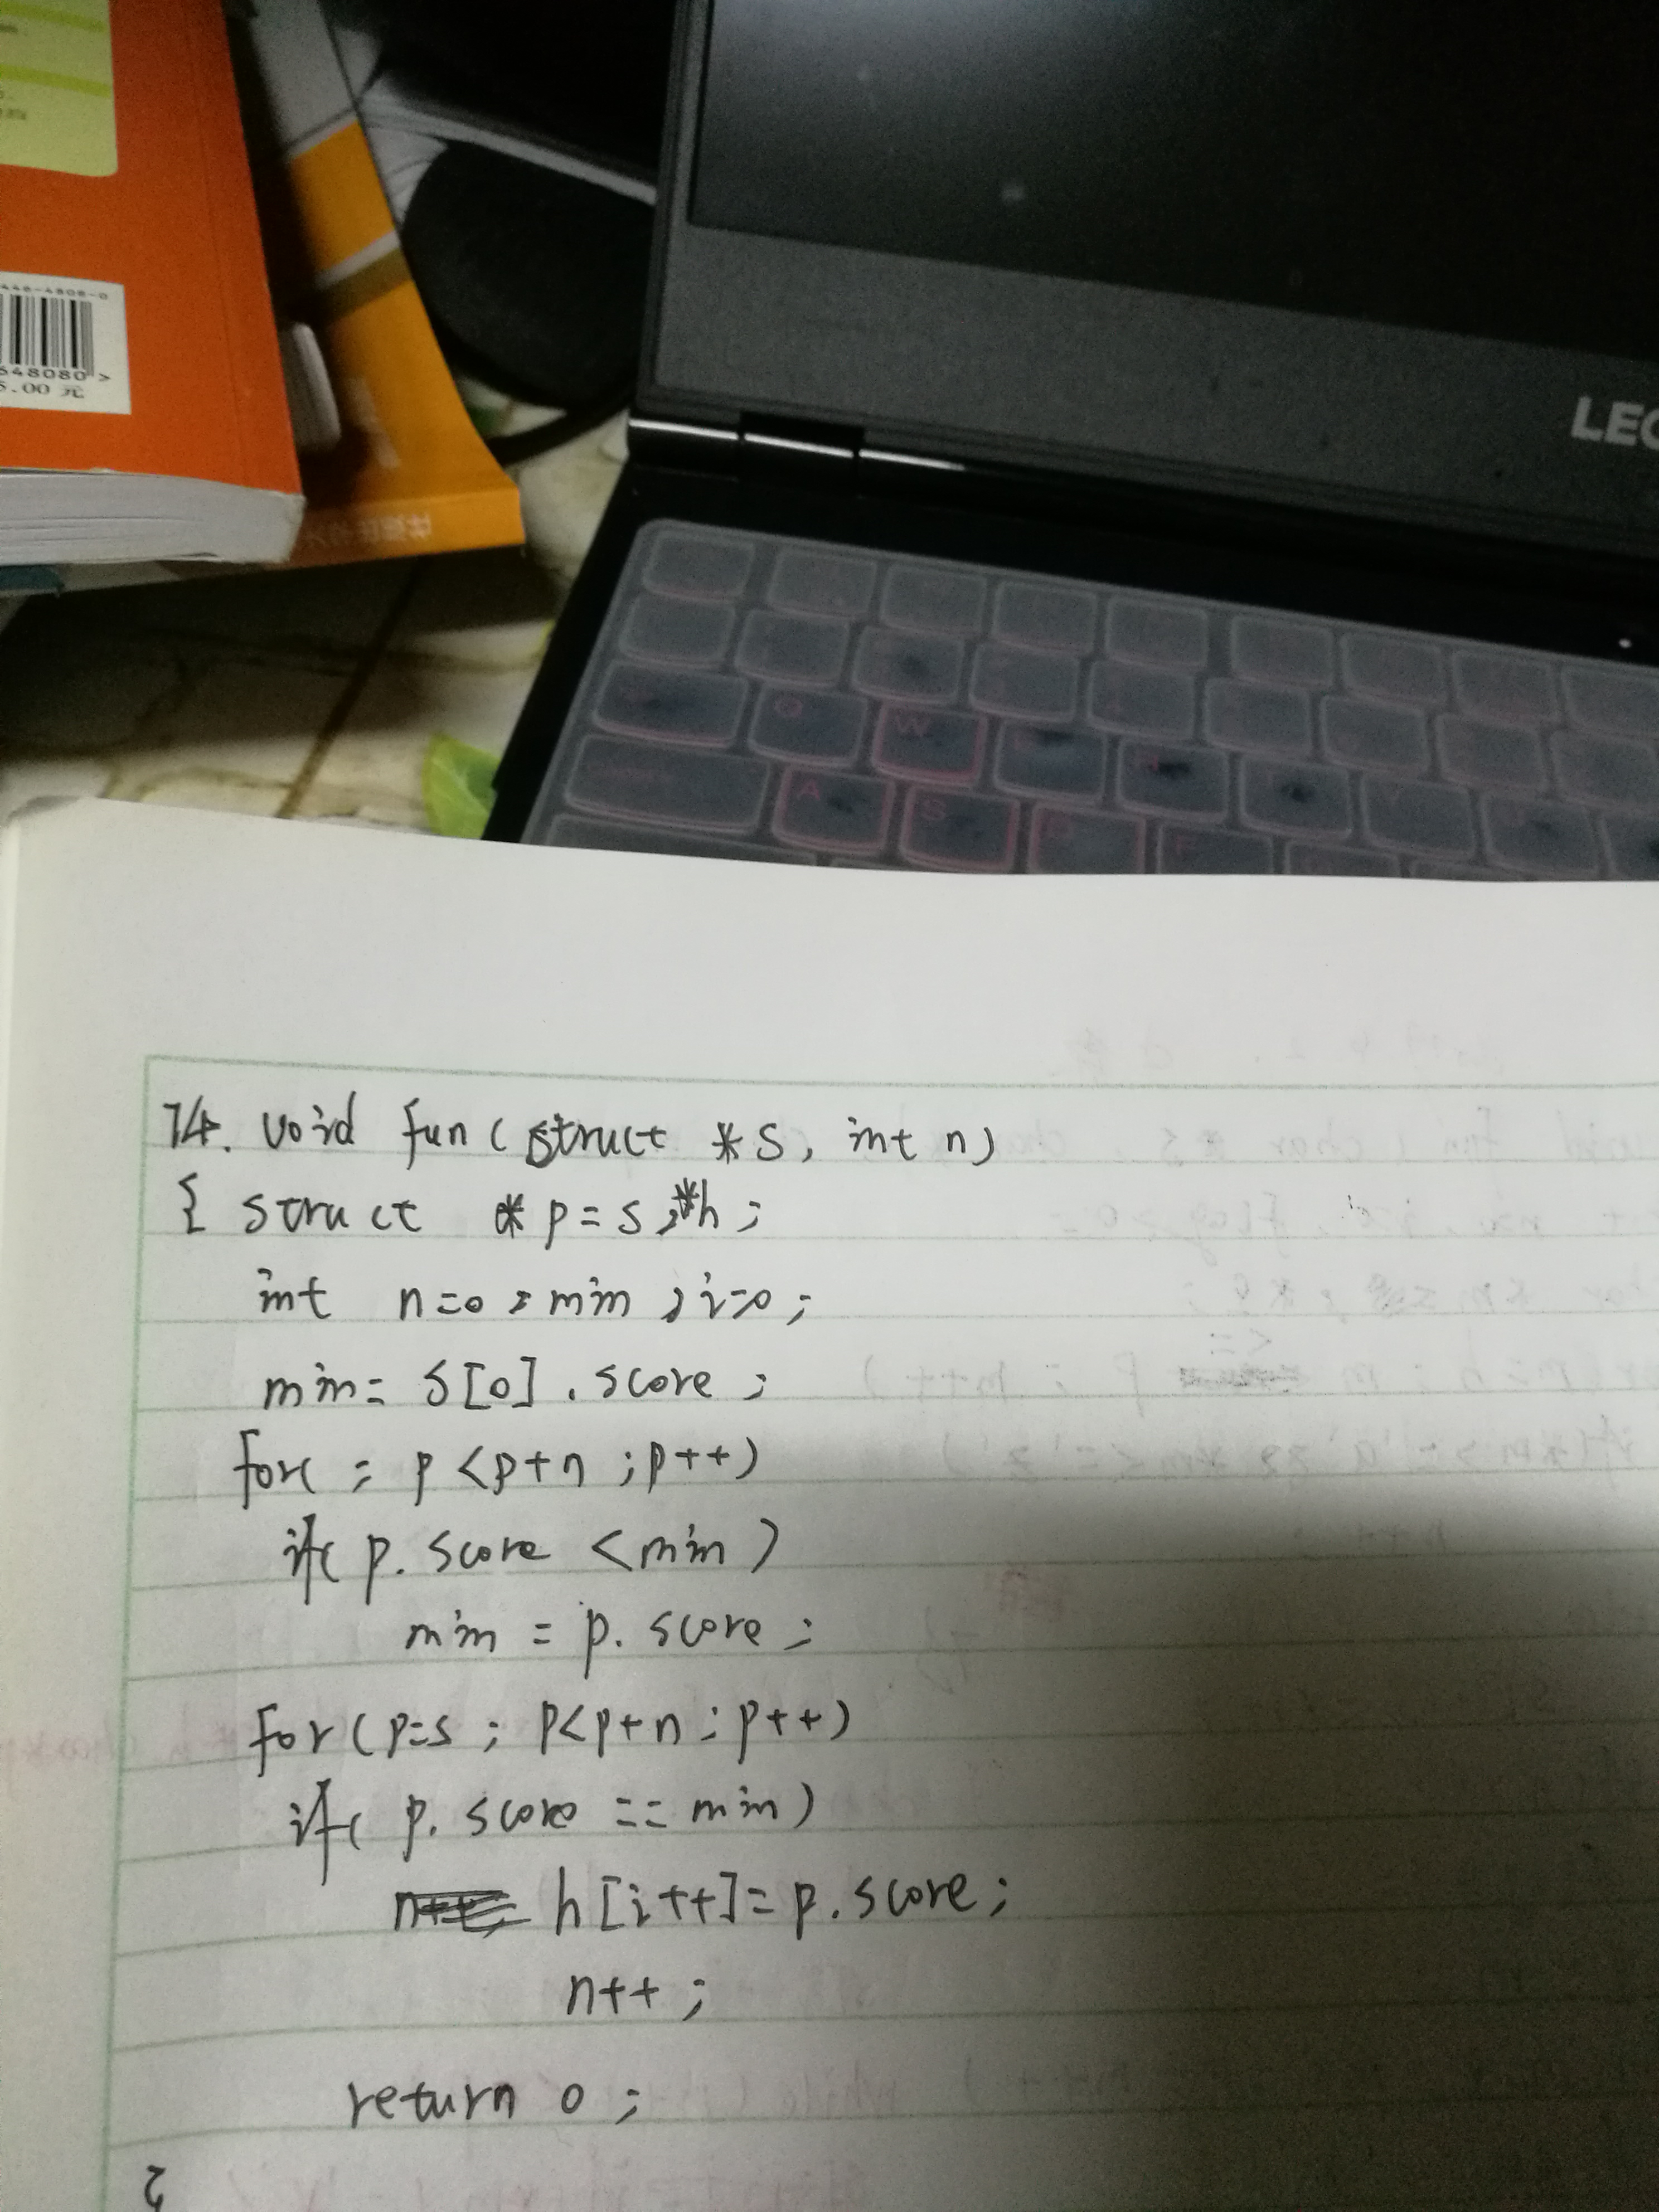 648080 >
5.00 元
LEG
Q
W
A
S
74. void fun ( struct *s, int n)
{ struct * p = s, *h ;
int n=0, min, i=0;
min= s[0] . score ;
for( ; p <p+n ; p++)
if( p. score <min )
min = p. score ;
for (p=s ; p<p+n ; p++)
if( p. score == min)
h [i++]= p. score ;
n++ ;
return 0 ;
}